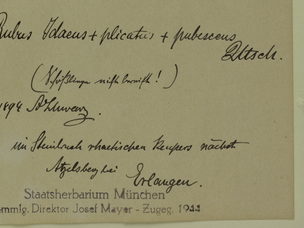 Rubus Idaeus + plicatus + pubescens
Uttsch.
(Schößlinge nicht bereift!)
1894 A. Schwarz.
im Steinbruch rhaetischen Keupers nächst
Atzelsberg bei Erlangen.
Staatsherbarium München
Sammlg. Direktor Josef Mayer - Zugeg. 1944